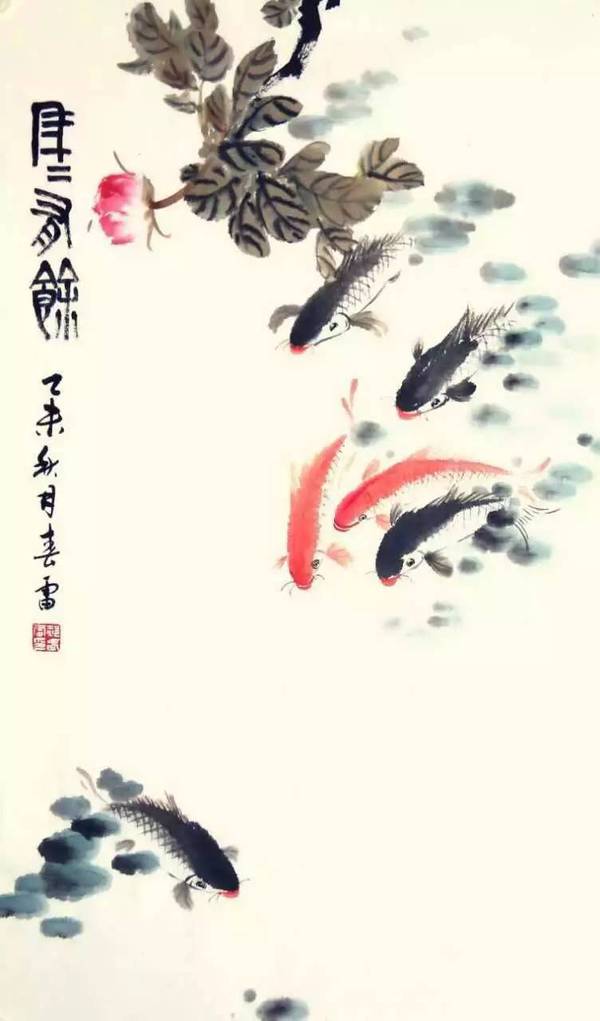 年二有餘
乙未秋月春雷